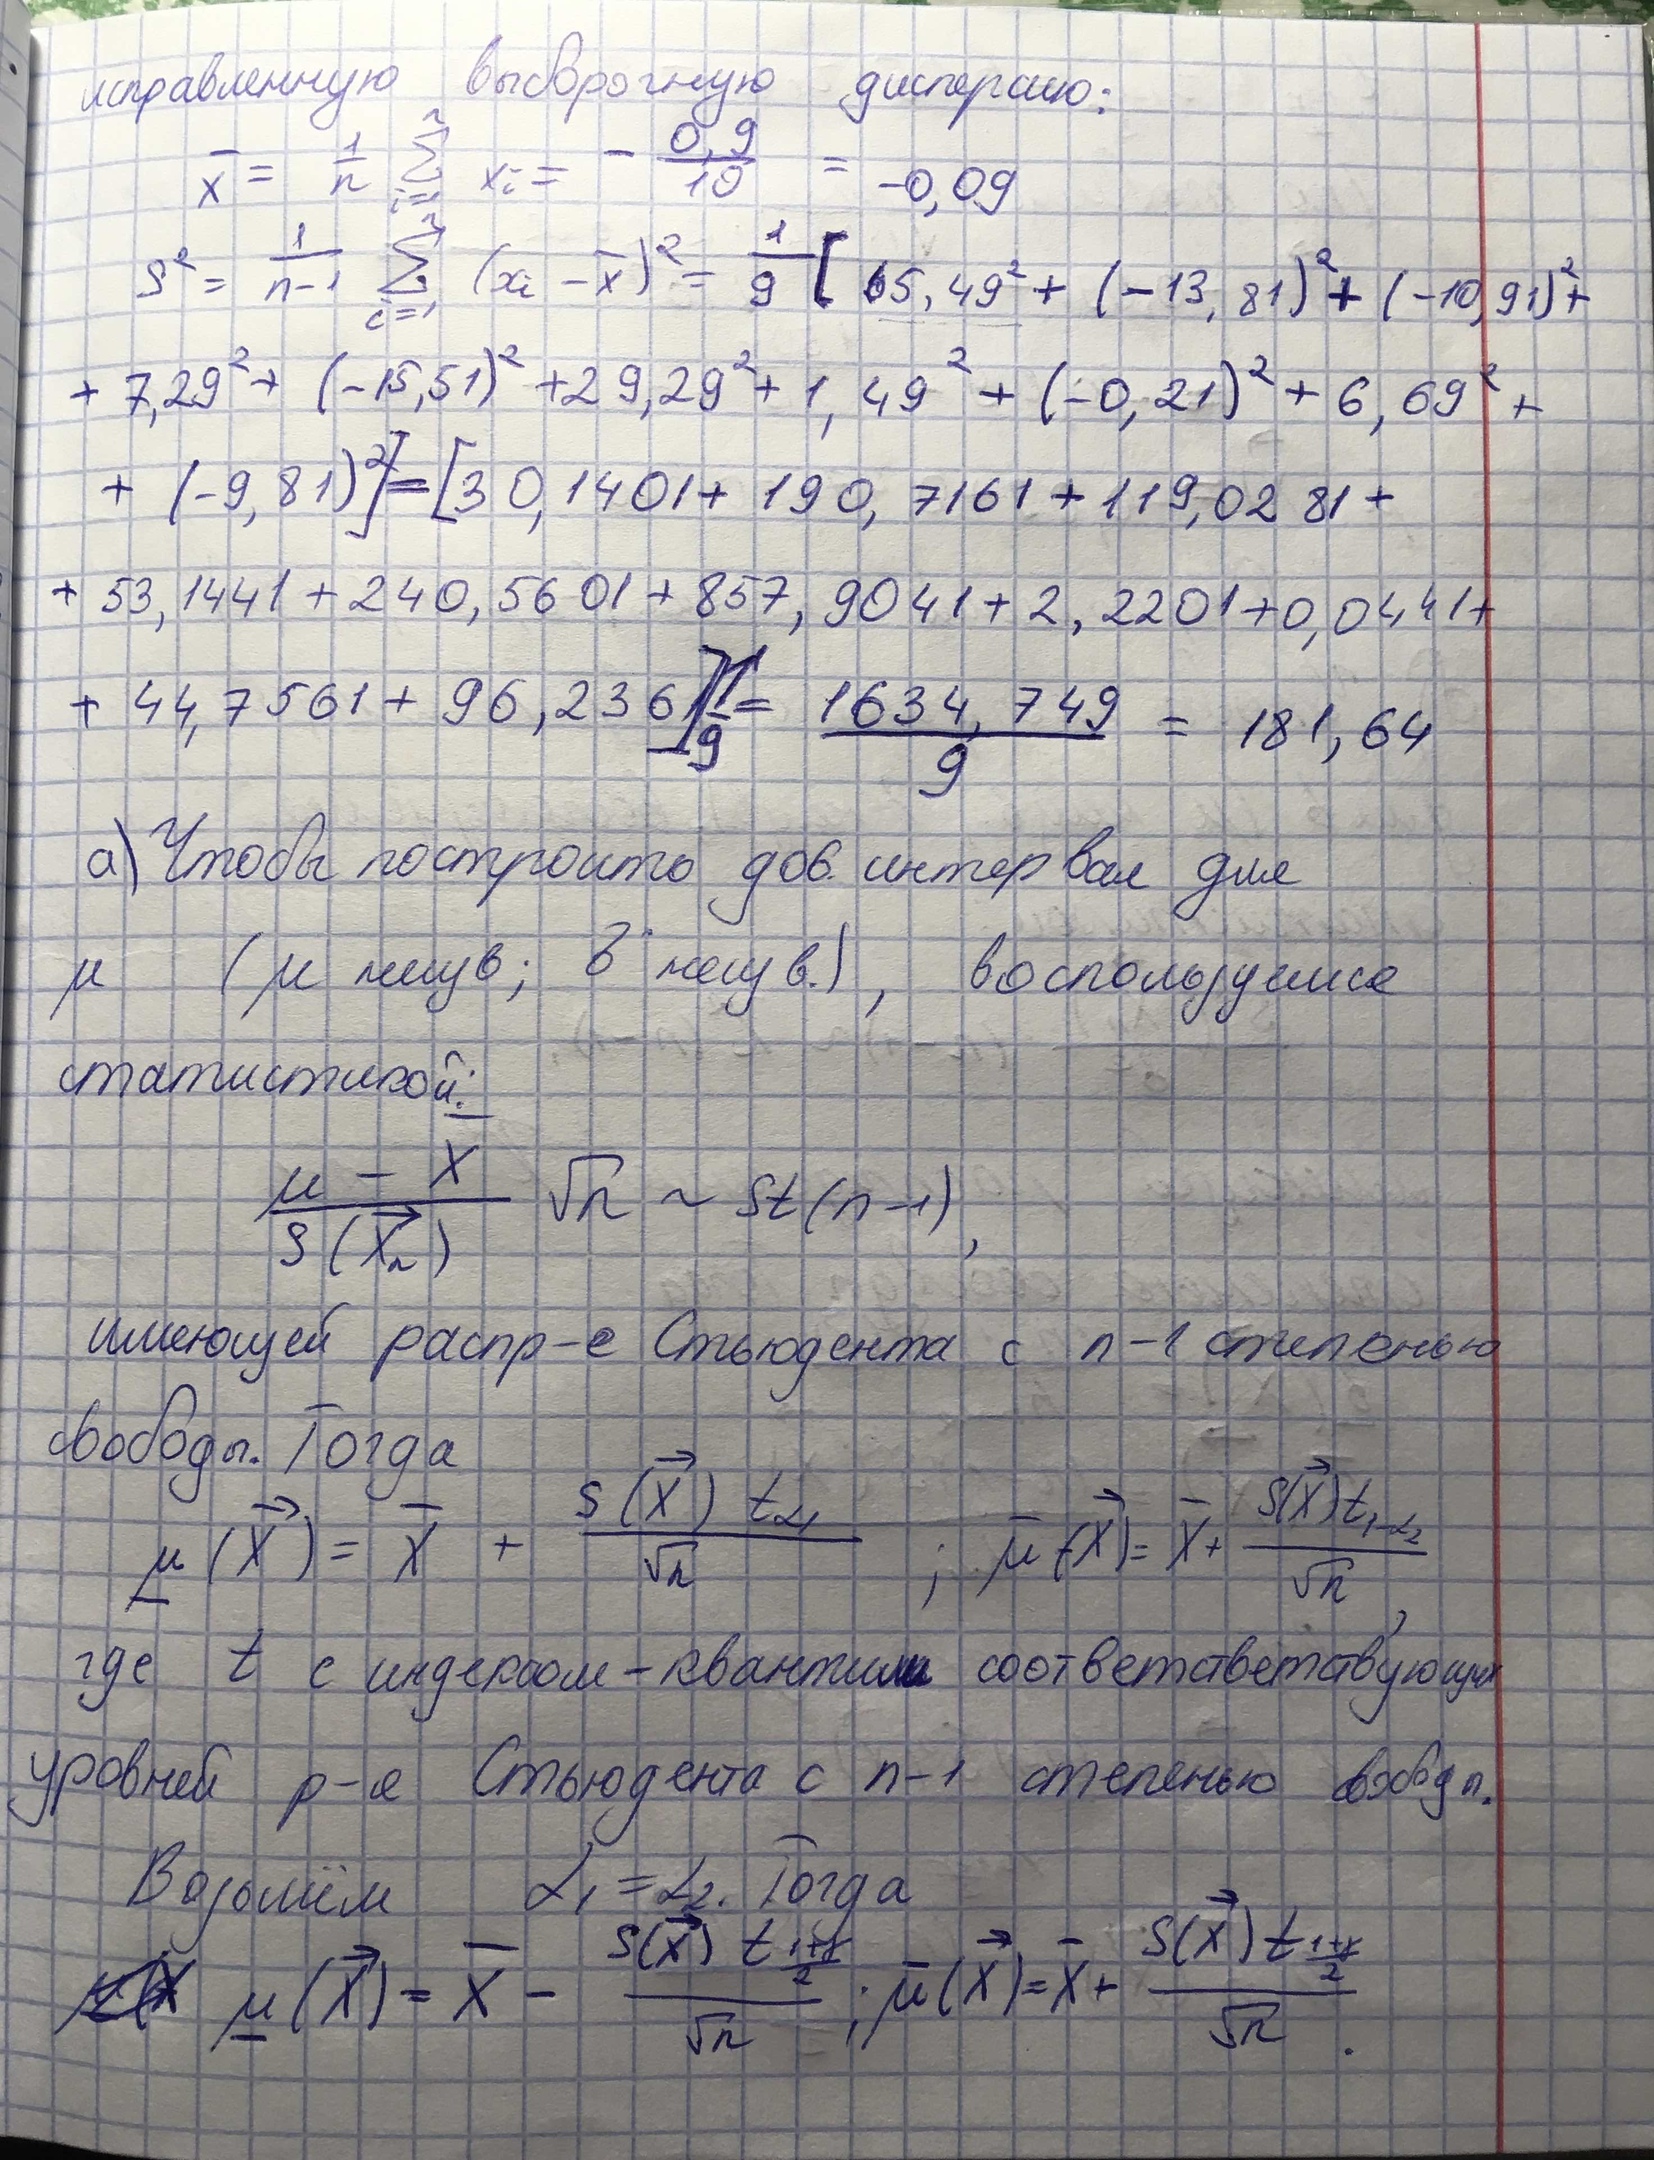 исправленную выборочную дисперсию:
x̄ = 1/n ∑ᵢ₌₁ⁿ xᵢ = - 0,9/10 = -0,09
S² = 1/(n-1) ∑ᵢ₌₁ⁿ (xᵢ - x̄)² = 1/9 [5,49² + (-13,81)² + (-10,91)² +
+ 7,29² + (-15,51)² + 29,29² + 1,49² + (-0,21)² + 6,69² +
+ (-9,81)²] = [30,1401 + 190,7161 + 119,0281 +
+ 53,1441 + 240,5601 + 857,9041 + 2,2201 + 0,0441 +
+ 44,7561 + 96,2361] 1/9 = 1634,749/9 = 181,64
а) Чтобы построить дов. интервал для
μ (μ неизв; неизв.), воспользуемся
статистикой:
(μ - X)/S(X⃗ₙ) √n ~ St(n-1),
имеющей распр-е Стьюдента с n-1 степенью
свободы. Тогда
μ̲(X⃗) = X̄ + S(X⃗) t_α₁/√n ; μ̄(X⃗) = X̄ + S(X⃗) t_1-α₂/√n,
где t с индексом - квантили соответстветствующих
уровней р-я Стьюдента с n-1 степенью свободы.
Возьмём α₁ = α₂. Тогда
μ̲(X⃗) = X̄ - S(X⃗) t_(1+γ)/2/√n ; μ̄(X⃗) = X̄ + S(X⃗) t_(1+γ)/2/√n .